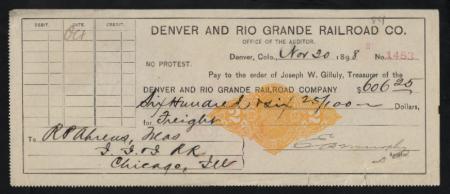 DEBIT. DATE. CREDIT.
Oct
DENVER AND RIO GRANDE RAILROAD CO.
OFFICE OF THE AUDITOR.
Denver, Colo., Nov 20 1898 No. 1453
NO PROTEST.
Pay to the order of Joseph W. Gilluly, Treasurer of the
DENVER AND RIO GRANDE RAILROAD COMPANY $606 25
Six Hundred & six 25/100 Dollars,
for Freight
To R P Ahrens, Mas
I. I. & I RR
Chicago, Ill